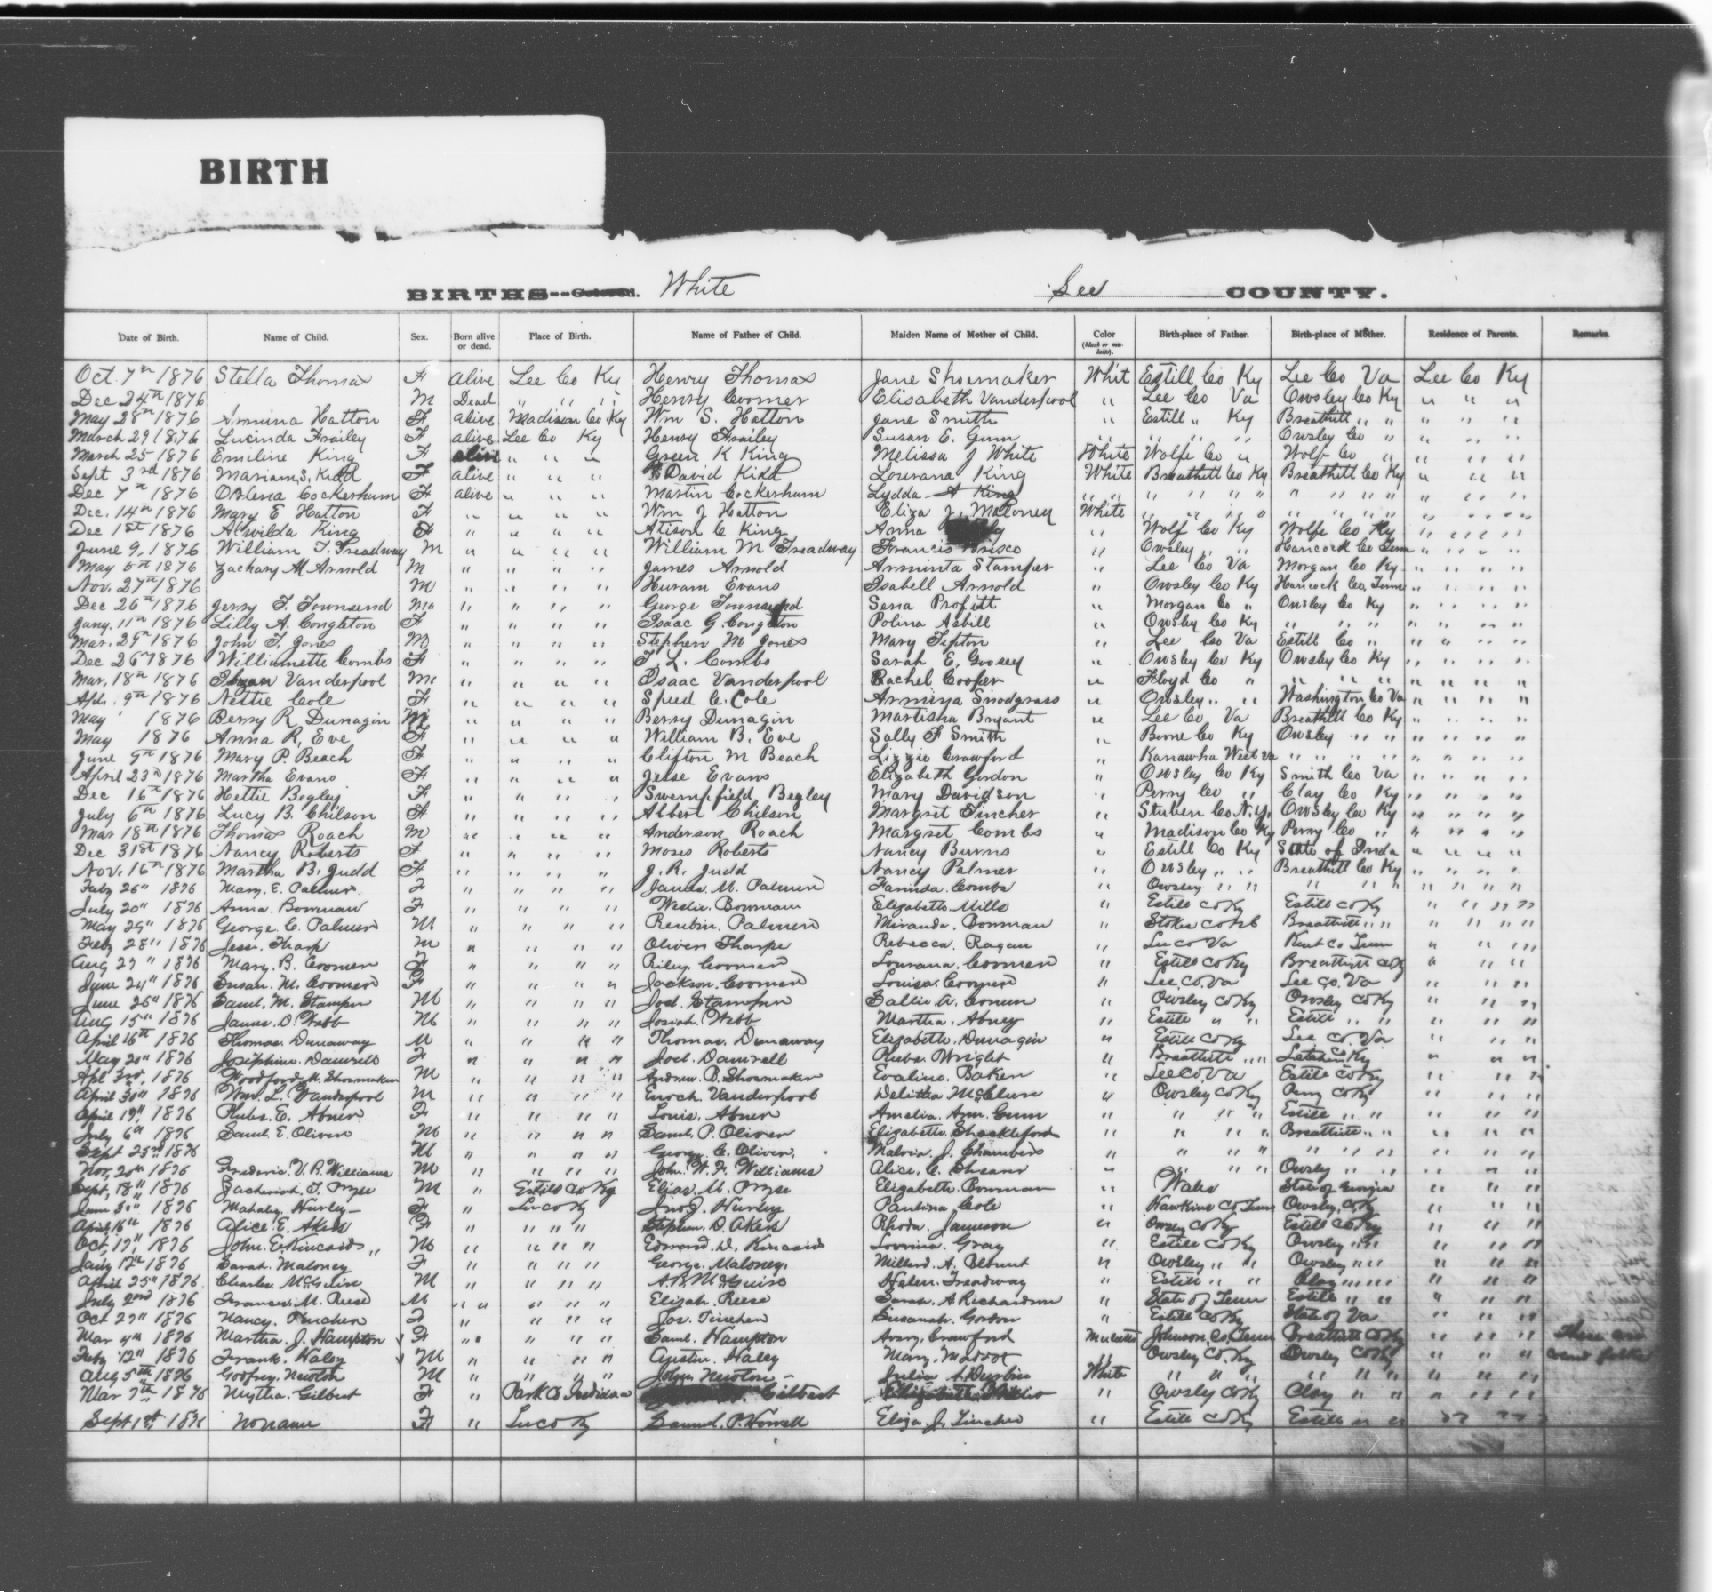 BIRTH
BIRTHS-- White Lee COUNTY.
Date of Birth. Name of Child. Sex. Born alive or dead. Place of Birth. Name of Father of Child. Maiden Name of Mother of Child. Color (Black or mulatto). Birth-place of Father. Birth-place of Mother. Residence of Parents. Remarks.
Oct. 7th 1876 Stella Thomas F Alive Lee Co Ky Henry Thomas Jane Shoemaker Whit Estill Co Ky Lee Co Va Lee Co Ky
Dec 24th 1876 M Dead " " " Henry Coomer Elisabeth Vanderpool " Lee Co Va Owsley Co Ky " " "
May 28th 1876 Hatton F alive Madison Co Ky Wm S. Hatton Jane Smith " Estill " Ky Breathitt " " " " "
March 29 1876 Lucinda Frailey F alive Lee Co Ky Henry Frailey Susan E. Gum " " " " Owsley Co " " " "
March 25 1876 Emiline King F alive " " " Green K King Melissa J White White Wolfe Co " Wolf Co " " " "
Sept 3rd 1876 Kidd F alive " " " David Kidd Lourana King White Breathitt Co Ky Breathitt Co Ky " " "
Dec 7th 1876 Cockerham F alive " " " Martin Cockerham Lydda A King " " " " " " " " " " "
Dec. 14th 1876 Mary E Hatton F " " " " Wm J Hatton Eliza J. Maloney White " " " " " " " " "
Dec 18th 1876 Alwilda King F " " " " C King Anna " Wolf Co Ky Wolfe Co Ky " " "
June 9, 1876 William T. Treadway M " " " " William M Treadway Francis Brisco " Owsley " " Co Tenn " " "
May 5th 1876 Zachary M Arnold M " " " " James Arnold Arminta Stamper " Lee Co Va Morgan Co Ky " " "
Nov. 27th 1876 M " " " " Hiram Evans Isabell Arnold " Owsley Co Ky Hancock Co, Tenn " " "
Dec 26th 1876 Jerry F. Townsend M " " " " George Townsend Sena Profitt " Morgan Co " Owsley Co Ky " " "
Jany. 11th 1876 Lilly A. Congleton F " " " " Isaac G. Congleton Polina Asbill " Owsley Co Ky " " " " " "
Mar. 29th 1876 John T. Jones M " " " " Stephen M Jones Mary Tipton " Lee Co Va Estill Co " " " "
Dec 26th 1876 Williamette Combs F " " " " T. L. Combs Sarah E. " Owsley Co Ky Owsley Co Ky " " "
Mar. 18th 1876 Vanderpool M " " " " Isaac Vanderpool Rachel Cooper " Floyd Co " " " " " " "
Apl. 9th 1876 Nettie Cole F " " " " Speed C. Cole Snodgrass " Owsley " " Washington Co Va " " "
May 1876 Berry R. Dunagin M " " " " Berry Dunagin Martisha Bryant " Lee Co Va Breathitt Co Ky " " "
May 1876 Anna R, Eve F " " " " William B. Eve Sally F Smith " Co Ky Owsley " " " " "
June 9th 1876 Mary P. Beach F " " " " Clifton M Beach Lizzie Crawford " Kanawha West Va " " " " " "
April 23rd 1876 Martha Evans F " " " " Jesse Evans Elizabeth Gordon " Owsley Co Ky Smith Co Va " " "
Dec 16th 1876 Hettie Begley F " " " " Begley Mary Davidson " Perry Co " Clay Co Ky " " "
July 6th 1876 Lucy B. Chilson F " " " " Albert Chilson Margret Fincher " Stuben Co N.Y. Owsley Co Ky " " "
Mar 18th 1876 Thomas Roach M " " " " Anderson Roach Margret Combs " Madison Co Ky Perry Co " " " "
Dec 31st 1876 Nancy Roberts F " " " " Moses Roberts Nancy Burns " Estill Co Ky State of Inda " " "
Nov. 16th 1876 Martha B. Judd F " " " " J. R. Judd Nancy Palmer " Owsley " " Breathitt Co Ky " " "
Feby 26th 1876 Mary. E. Palmer F " " " " James. M. Palmer Combs " Owsley " " " " " " " "
July 20th 1876 Anna Bowman F " " " " Bowman Elizabeth Mills " Estill Co Ky Estill Co Ky " " "
May 29th 1876 George. C. Palmer M " " " " Reubin. Palmer Miranda. Bowman " Breathitt " " " " "
Feby 28th 1876 Jesse. Tharp M " " " " Oliver Tharpe Rebecca. Ragan " Lee co Va Co Tenn " " "
Aug 27th 1876 Mary. B. Coomer F " " " " Riley. Coomer Lourana. Coomer " Estill Co Ky Breathitt Co Ky " " "
June 24th 1876 Susan. M. Coomer F " " " " Jackson. Coomer Louisa. " Lee. Co. Va Lee Co. Va " " "
June 26th 1876 Saml. M. Stamper M " " " " Joel. Stamper Sallie A. " Owsley Co Ky Owsley Co Ky " " "
Aug 15th 1876 James. D. Webb M " " " " Josiah. Webb Martha. Abney " Estill " " Estill " " " " "
April 16th 1876 Thomas. Dunaway M " " " " Thomas. Dunaway Elizabeth. Dunagin " Estill Co Ky Lee Co. Va " " "
May 20th 1876 Josephine. Damrell F " " " " Joel. Damrell Wright " Breathitt " " Letcher Co Ky " " "
Apl 3rd, 1876 Woodford. Shoemaker M " " " " Andrew. B. Shoemaker Evaline. Baker " Lee Co Va Estill Co Ky " " "
April 30th 1876 Wm. L. Vanderpool M " " " " Enoch. Vanderpool McClure " Owsley Co Ky Perry Co Ky " " "
April 19th 1876 E. Abner F " " " " Louis. Abner Amelia. Ann. Gum " " " " Estill " " " " "
July 6th 1876 Saml. E. Oliver M " " " " Saml. P. Oliver Elizabeth. Shackleford " " " " Breathitt " " " " "
Sept 23rd 1876 M " " " " George. C. Oliver. J. Chambers " " " " " " " " " "
Nov, 20th 1876 Frederic. V. R. Williams M " " " " John. W. F. Williams Alice. C. " " " " Owsley " " " " "
Sept, 18th 1876 Zachariah. T. Pryse M " Estill Co Ky Elias. M. Pryse Elizabeth. Bowman " Wales State of Georgia " " "
1876 Mahaley Hurley F " Lee co Ky Hurley Paulina Cole " Hawkins Co. Tenn Owsley, Co Ky " " "
April 16th 1876 Alice. E. Aken F " " " " Stephen. D. Aken Rhoda. Jameson " Owsley Co Ky Estill Co Ky " " "
Oct, 19th, 1876 John. E. Kincaid M " " " " Edward. D. Kincaid Gray " Estill Co Ky Owsley " " " " "
Jany 17th 1876 Sarah. Maloney F " " " " George. Maloney. Millard. A. Blount " Owsley " " Owsley " " " " "
April 25th 1876. Charles McGuire M " " " " A. B. McGuire Helen. Treadway " Estill " " Clay " " " " "
July 2nd 1876 Francis. M. Reese M " " " " Elizah. Reese Sarah. A Richardson " State of Tenn Estill " " " " "
Oct 29th 1876 Nancy. Fincher F " " " " Jos. Fincher Susanah. Gordon " Estill Co Ky State of Va " " "
Mar 4th 1876 Martha. J. Hampton F " " " " Saml. Hampton Crawford Mulatto Johnson. Co. Tenn Breathitt Co Ky " " " These and
Feby 12th 1876 Frank. Haley M " " " " Haley Mary. " Owsley Co. Ky Owsley Co Ky " " "
Aug 5th 1876 Godfrey. Newton M " " " " John Newton Julia A. Durbin White " " " " " " " " "
Mar 7th 1876 Gilbert F " Park Co Indiana Gilbert " Owsley Co Ky Clay " " " " "
Sept 1st 1876 No name F " Lee co Ky Samuel. P. Eliza J. Fincher " Estill Co Ky Estill " " " " "